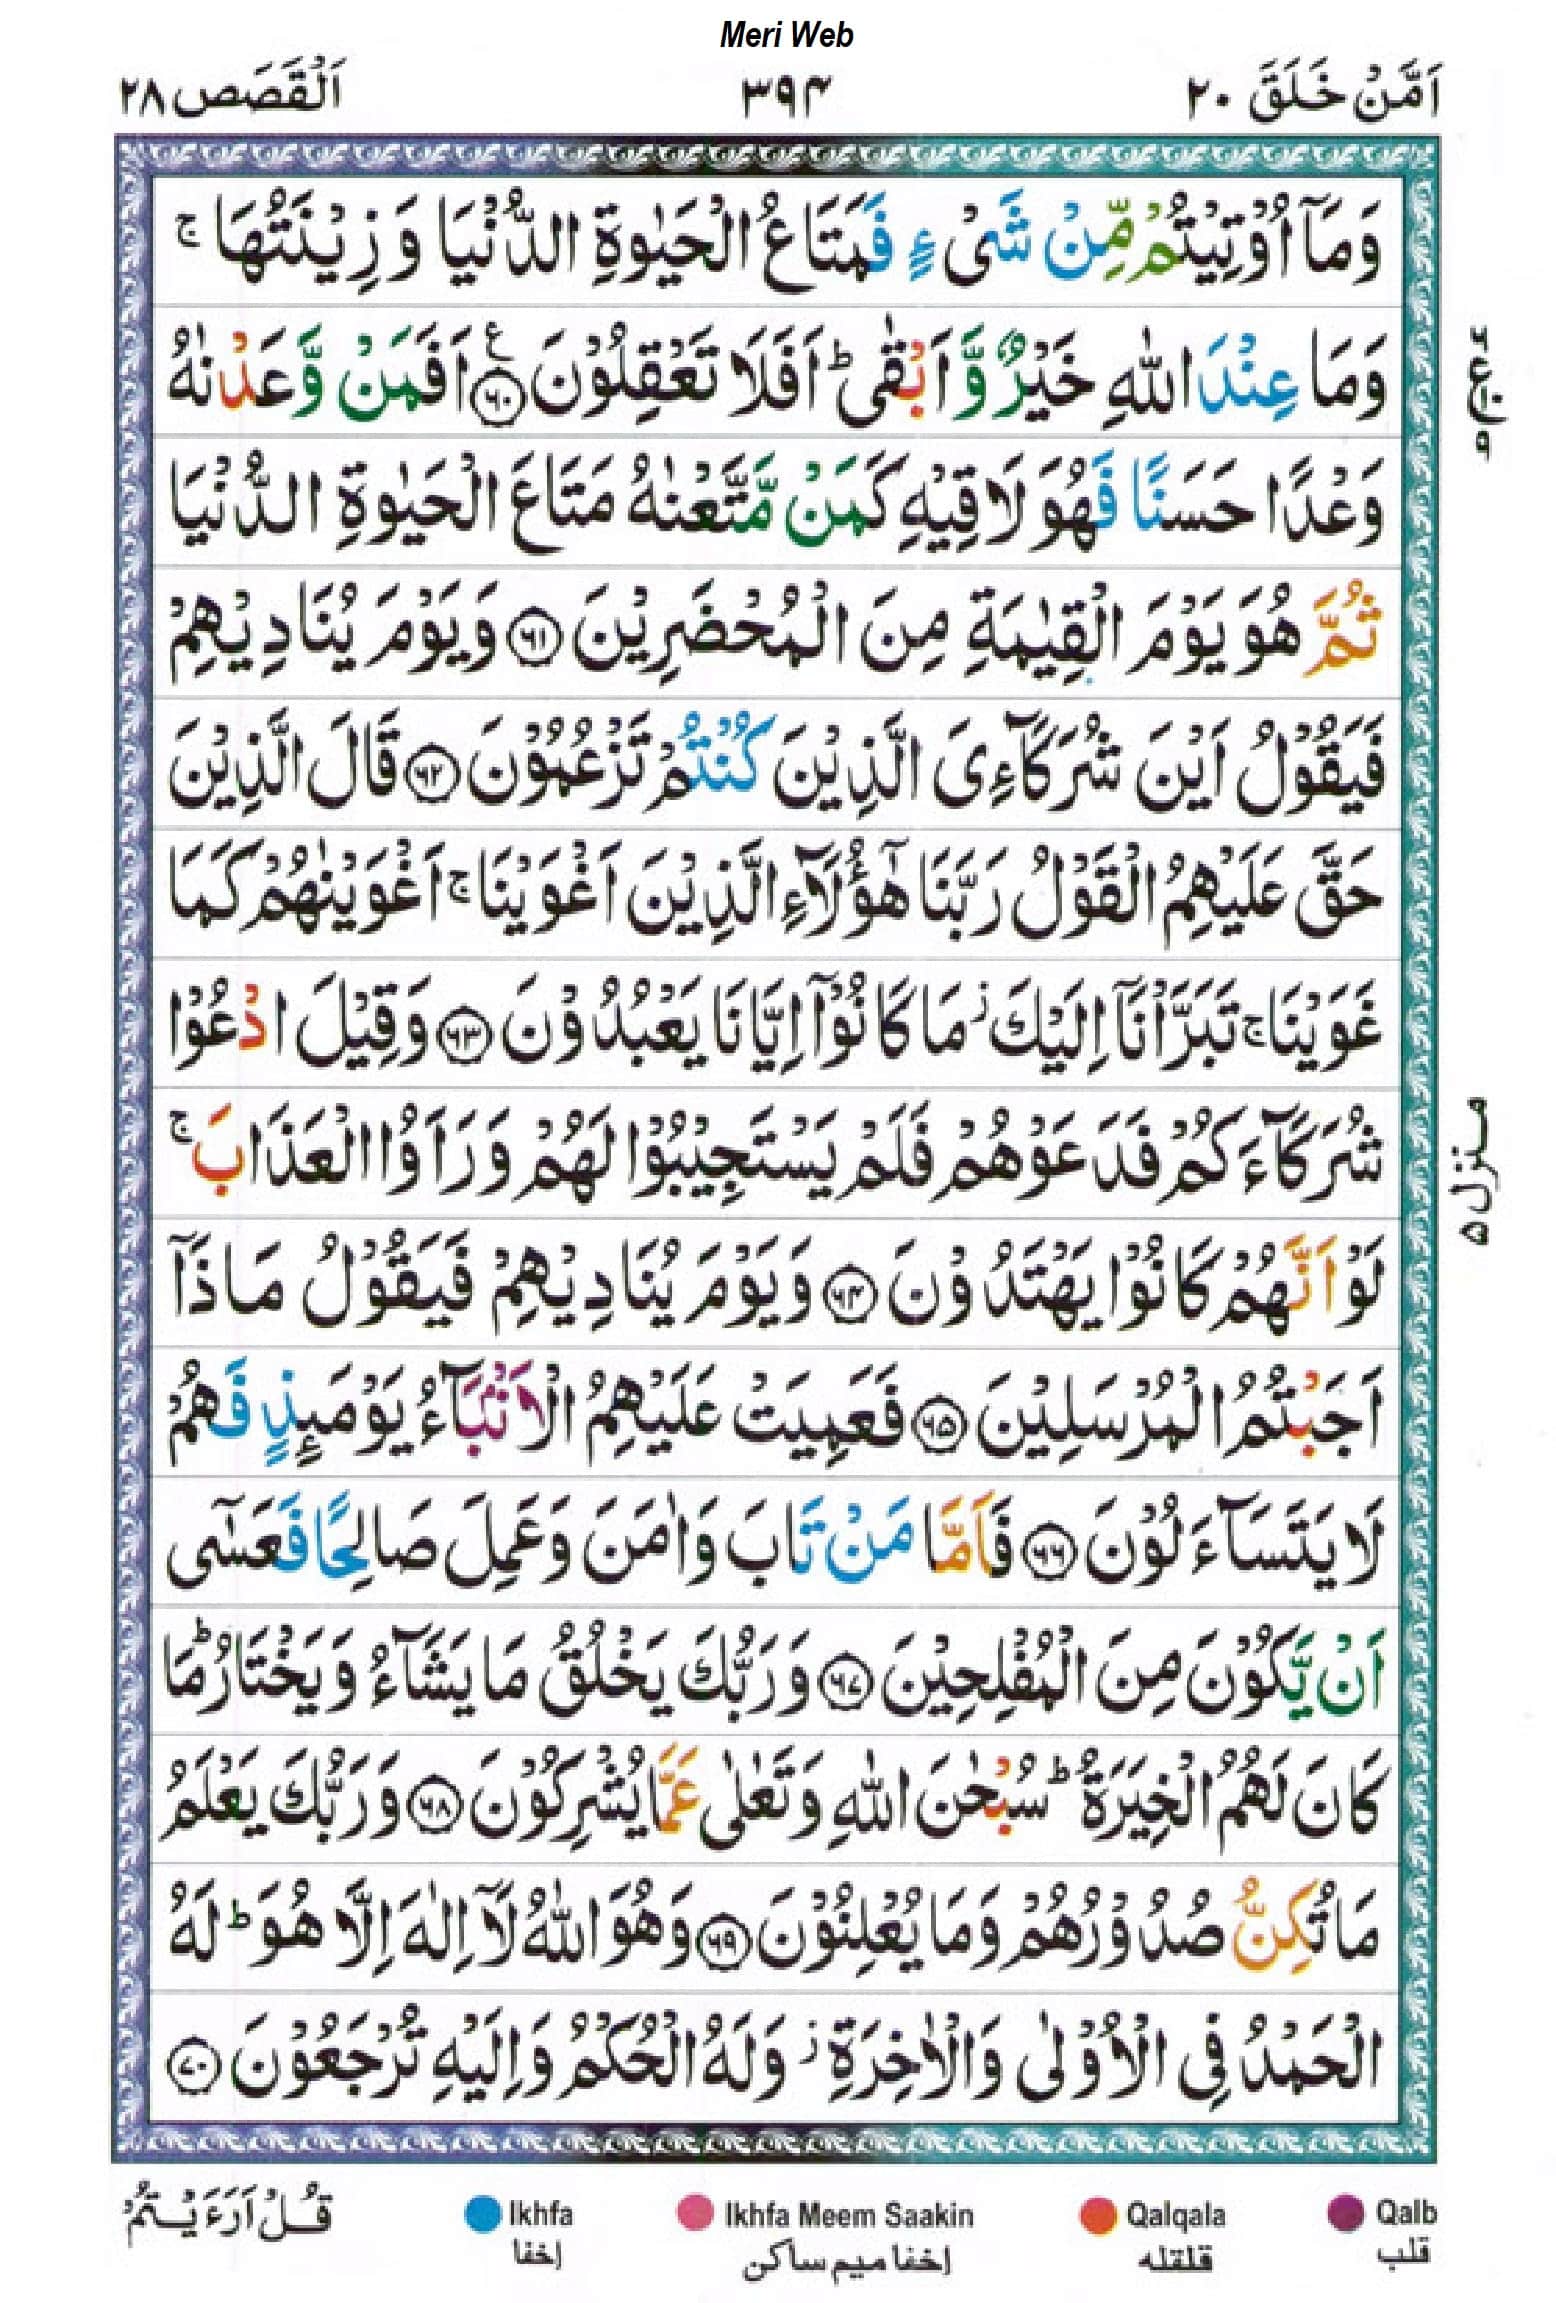 Meri Web
اَمَّنْ خَلَقَ ٢٠
٣٩۴
اَلْقَصَص ٢٨
وَمَآ اُوْتِيْتُمْ مِّنْ شَیْءٍ فَمَتَاعُ الْحَيٰوةِ الدُّنْيَا وَ زِيْنَتُهَا ۚ
وَمَا عِنْدَ اللّٰهِ خَيْرٌ وَّ اَبْقٰی ؕ اَفَلَا تَعْقِلُوْنَ ﴿۶۰﴾ اَفَمَنْ وَّعَدْنٰهُ
وَعْدًا حَسَنًا فَهُوَ لَاقِيْهِ كَمَنْ مَّتَّعْنٰهُ مَتَاعَ الْحَيٰوةِ الدُّنْيَا
ثُمَّ هُوَ يَوْمَ الْقِيٰمَةِ مِنَ الْمُحْضَرِيْنَ ﴿۶۱﴾ وَيَوْمَ يُنَادِيْهِمْ
فَيَقُوْلُ اَيْنَ شُرَكَآءِیَ الَّذِيْنَ كُنْتُمْ تَزْعُمُوْنَ ﴿۶۲﴾ قَالَ الَّذِيْنَ
حَقَّ عَلَيْهِمُ الْقَوْلُ رَبَّنَا هٰٓؤُلَآءِ الَّذِيْنَ اَغْوَيْنَا ۚ اَغْوَيْنٰهُمْ كَمَا
غَوَيْنَا ۚ تَبَرَّاْنَآ اِلَيْكَ ز مَا كَانُوْٓا اِيَّانَا يَعْبُدُوْنَ ﴿۶۳﴾ وَقِيْلَ ادْعُوْا
شُرَكَآءَكُمْ فَدَعَوْهُمْ فَلَمْ يَسْتَجِيْبُوْا لَهُمْ وَرَاَوُا الْعَذَابَ ۚ
لَوْ اَنَّهُمْ كَانُوْا يَهْتَدُوْنَ ﴿۶۴﴾ وَيَوْمَ يُنَادِيْهِمْ فَيَقُوْلُ مَاذَآ
اَجَبْتُمُ الْمُرْسَلِيْنَ ﴿۶۵﴾ فَعَمِيَتْ عَلَيْهِمُ الْاَنْۢبَآءُ يَوْمَئِذٍ فَهُمْ
لَا يَتَسَآءَلُوْنَ ﴿۶۶﴾ فَاَمَّا مَنْ تَابَ وَاٰمَنَ وَعَمِلَ صَالِحًا فَعَسٰٓی
اَنْ يَّكُوْنَ مِنَ الْمُفْلِحِيْنَ ﴿۶۷﴾ وَرَبُّكَ يَخْلُقُ مَا يَشَآءُ وَيَخْتَارُ ؕ مَا
كَانَ لَهُمُ الْخِيَرَةُ ؕ سُبْحٰنَ اللّٰهِ وَتَعٰلٰی عَمَّا يُشْرِكُوْنَ ﴿۶۸﴾ وَرَبُّكَ يَعْلَمُ
مَا تُكِنُّ صُدُوْرُهُمْ وَمَا يُعْلِنُوْنَ ﴿۶۹﴾ وَهُوَ اللّٰهُ لَآ اِلٰهَ اِلَّا هُوَ ؕ لَهُ
الْحَمْدُ فِی الْاُوْلٰی وَالْاٰخِرَةِ ز وَلَهُ الْحُكْمُ وَاِلَيْهِ تُرْجَعُوْنَ ﴿۷۰﴾
منزل ۵
قُلْ اَرَءَيْتُمْ
Ikhfa
إخفا
Ikhfa Meem Saakin
إخفا ميم ساكن
Qalqala
قلقله
Qalb
قلب